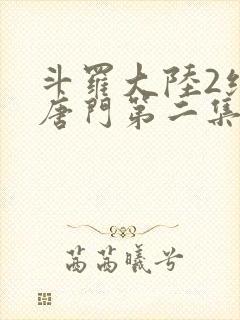 斗羅大陸2
唐門第二集
茜茜曦兮